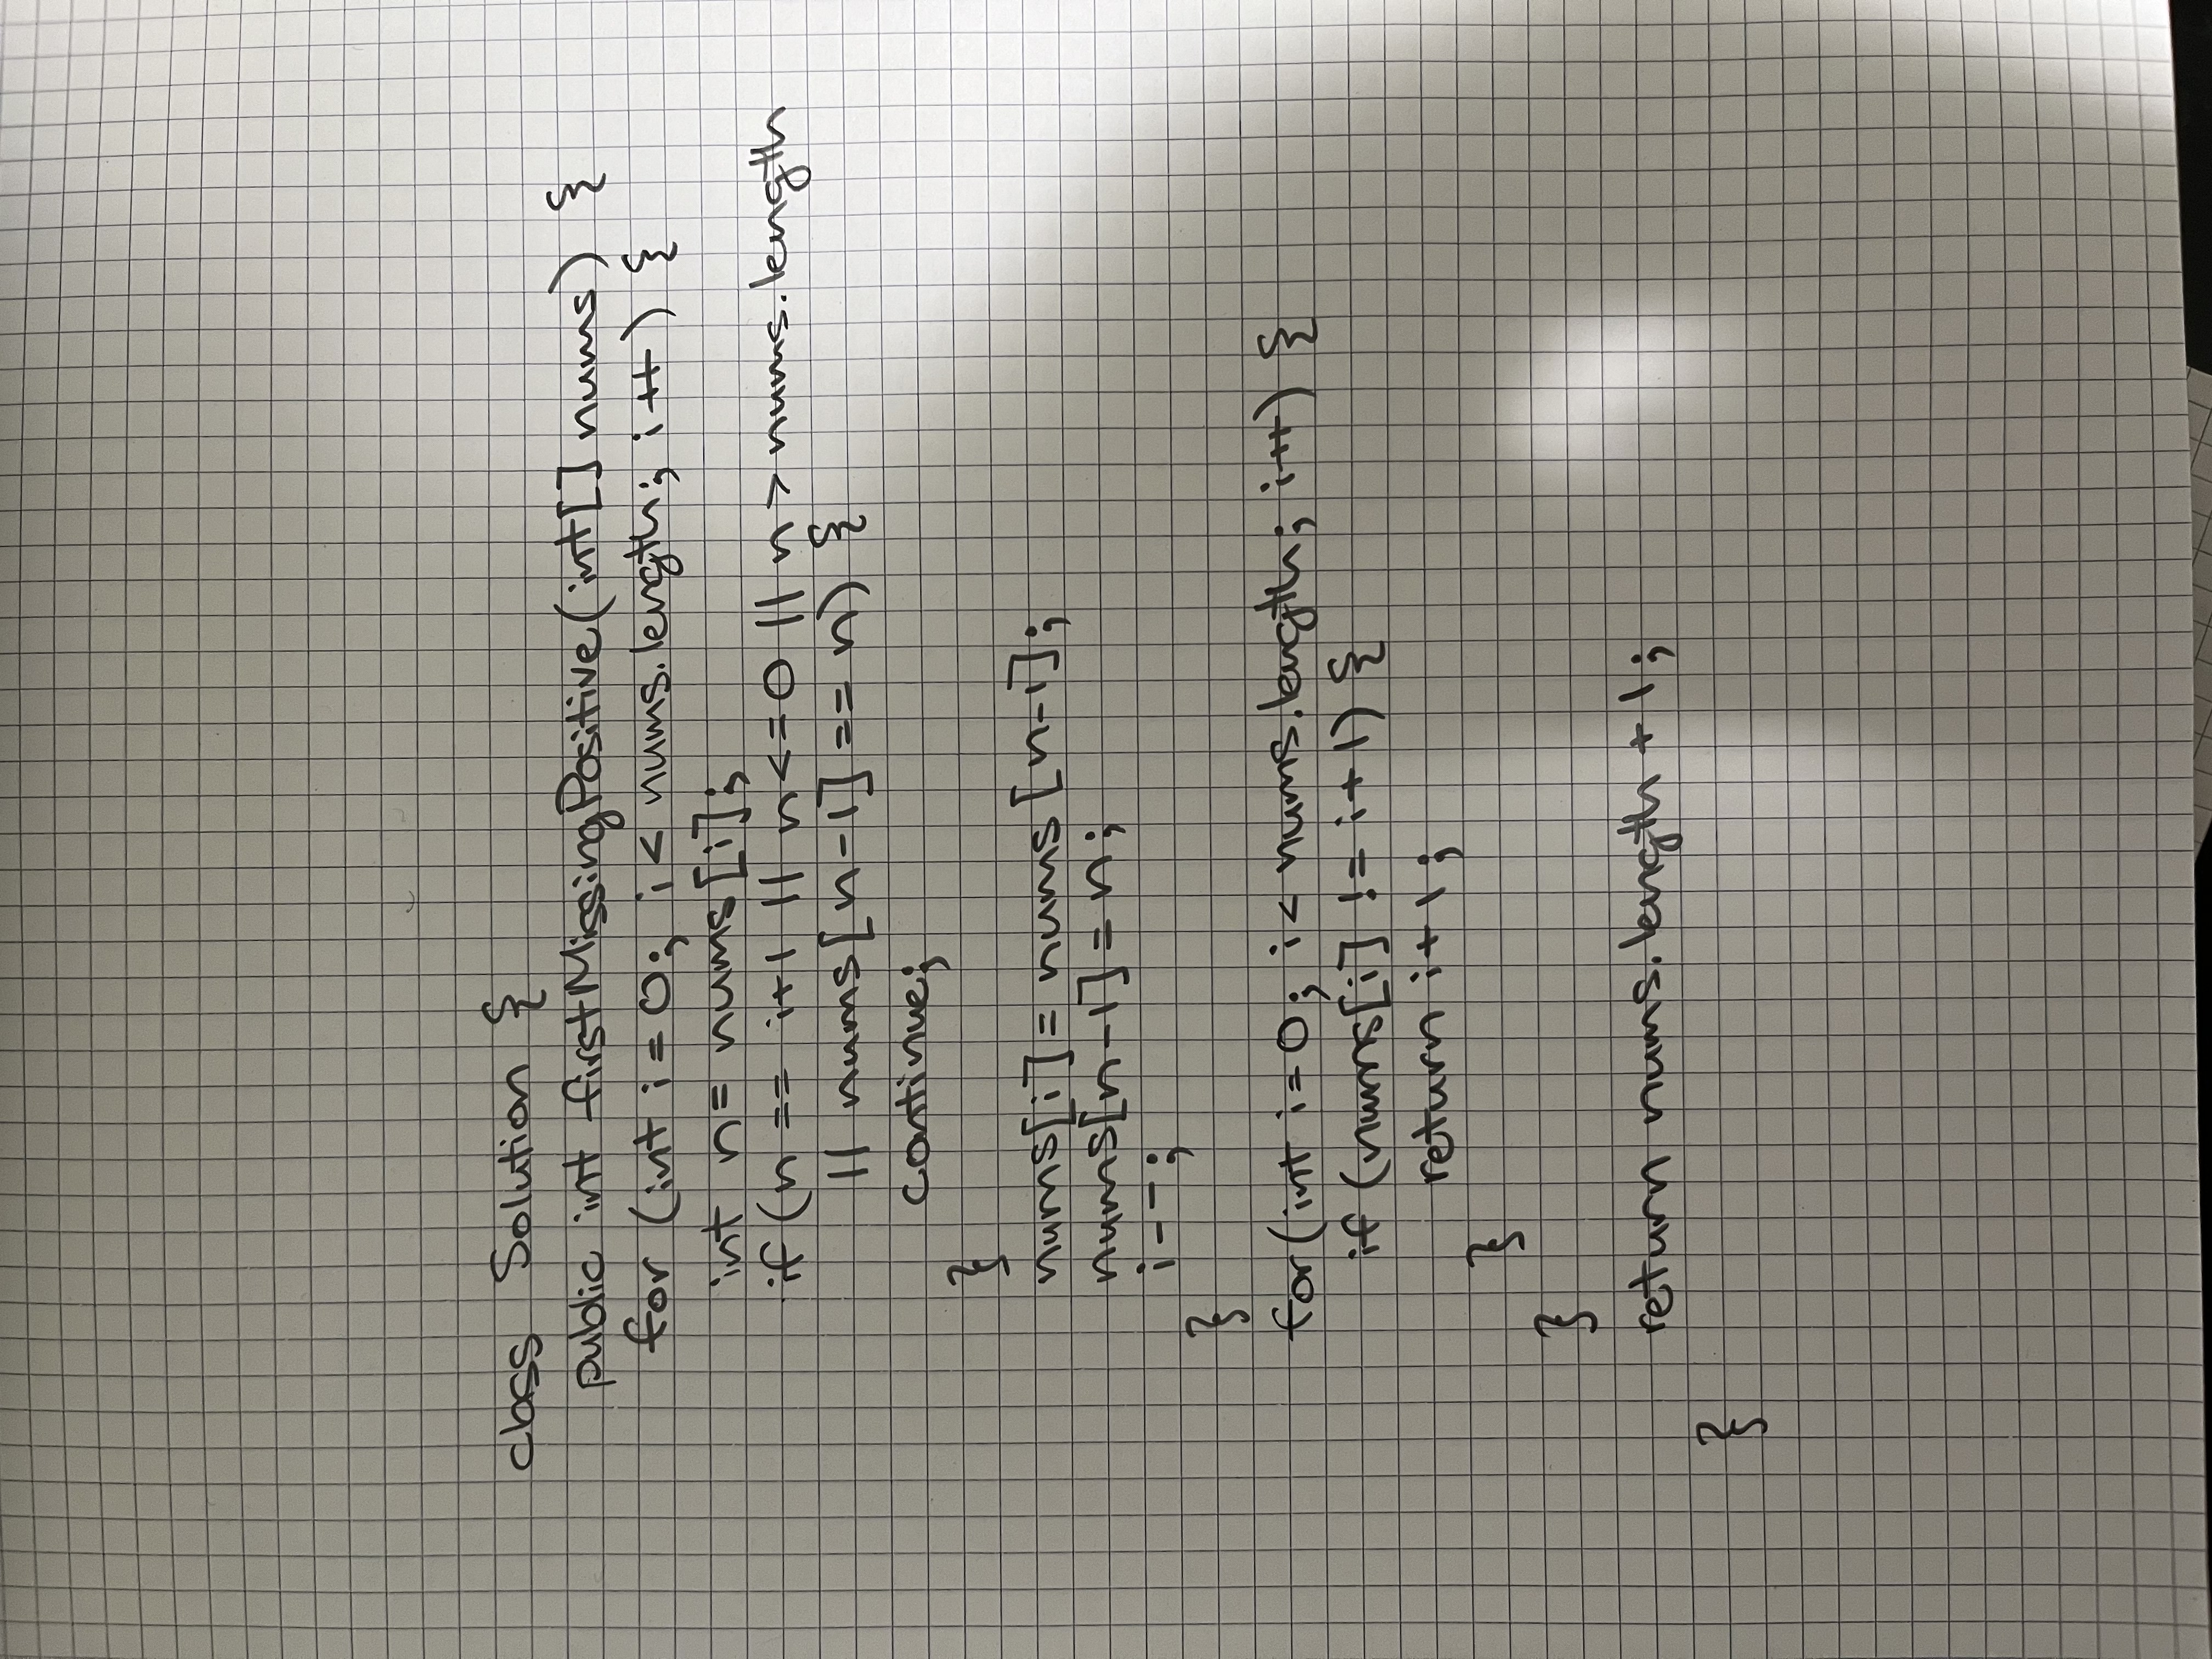 class Solution {
public int firstMissingPositive(int[] nums) {
for (int i = 0; i < nums.length; i++) {
int n = nums[i];
if (n == i+1 || n <= 0 || n > nums.length
|| nums[n-1] == n) {
continue;
}
nums[i] = nums[n-1];
nums[n-1] = n;
i--;
}
for(int i = 0; i < nums.length; i++) {
if (nums[i] != i+1) {
return i+1;
}
}
return nums.length + 1;
}